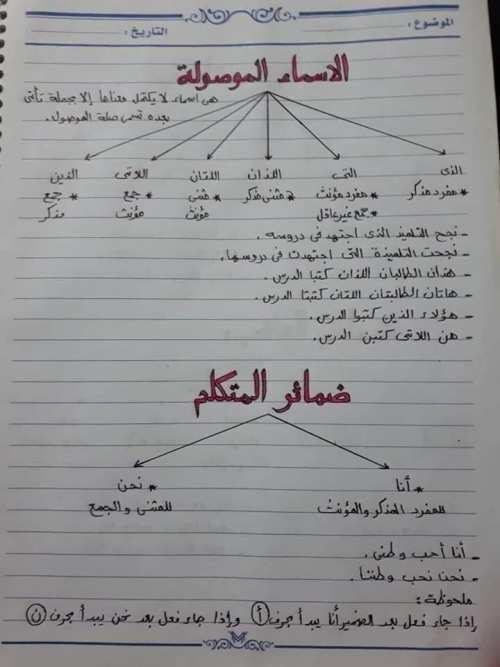 الموضوع :
التاريخ :
الاسماء الموصولة
هى اسماء لا يكتمل معناها إلا بجملة تأتى
بعده تسمى صلة الموصول.
الذى التى اللذان اللتان اللاتى الذين
* مفرد مذكر * مفرد مؤنث * مثنى مذكر * مثنى * جمع * جمع
* جمع غير عاقل مؤنث مؤنث مذكر
- نجح التلميذ الذى اجتهد فى دروسه .
- نجحت التلميذة التى اجتهدت فى دروسها .
- هذان الطالبان اللذان كتبا الدرس .
- هاتان الطالبتان اللتان كتبتا الدرس .
- هؤلاء الذين كتبوا الدرس .
- هن اللاتى كتبن الدرس .
ضمائر المتكلم
* أنا * نحن
للمفرد المذكر والمؤنث للمثنى والجمع
- أنا أحب وطنى .
- نحن نحب وطننا .
ملحوظة :
إذا جاء فعل بعد الضمير أنا يبدأ بحرف أ وإذا جاء فعل بعد نحن يبدأ بحرف ن